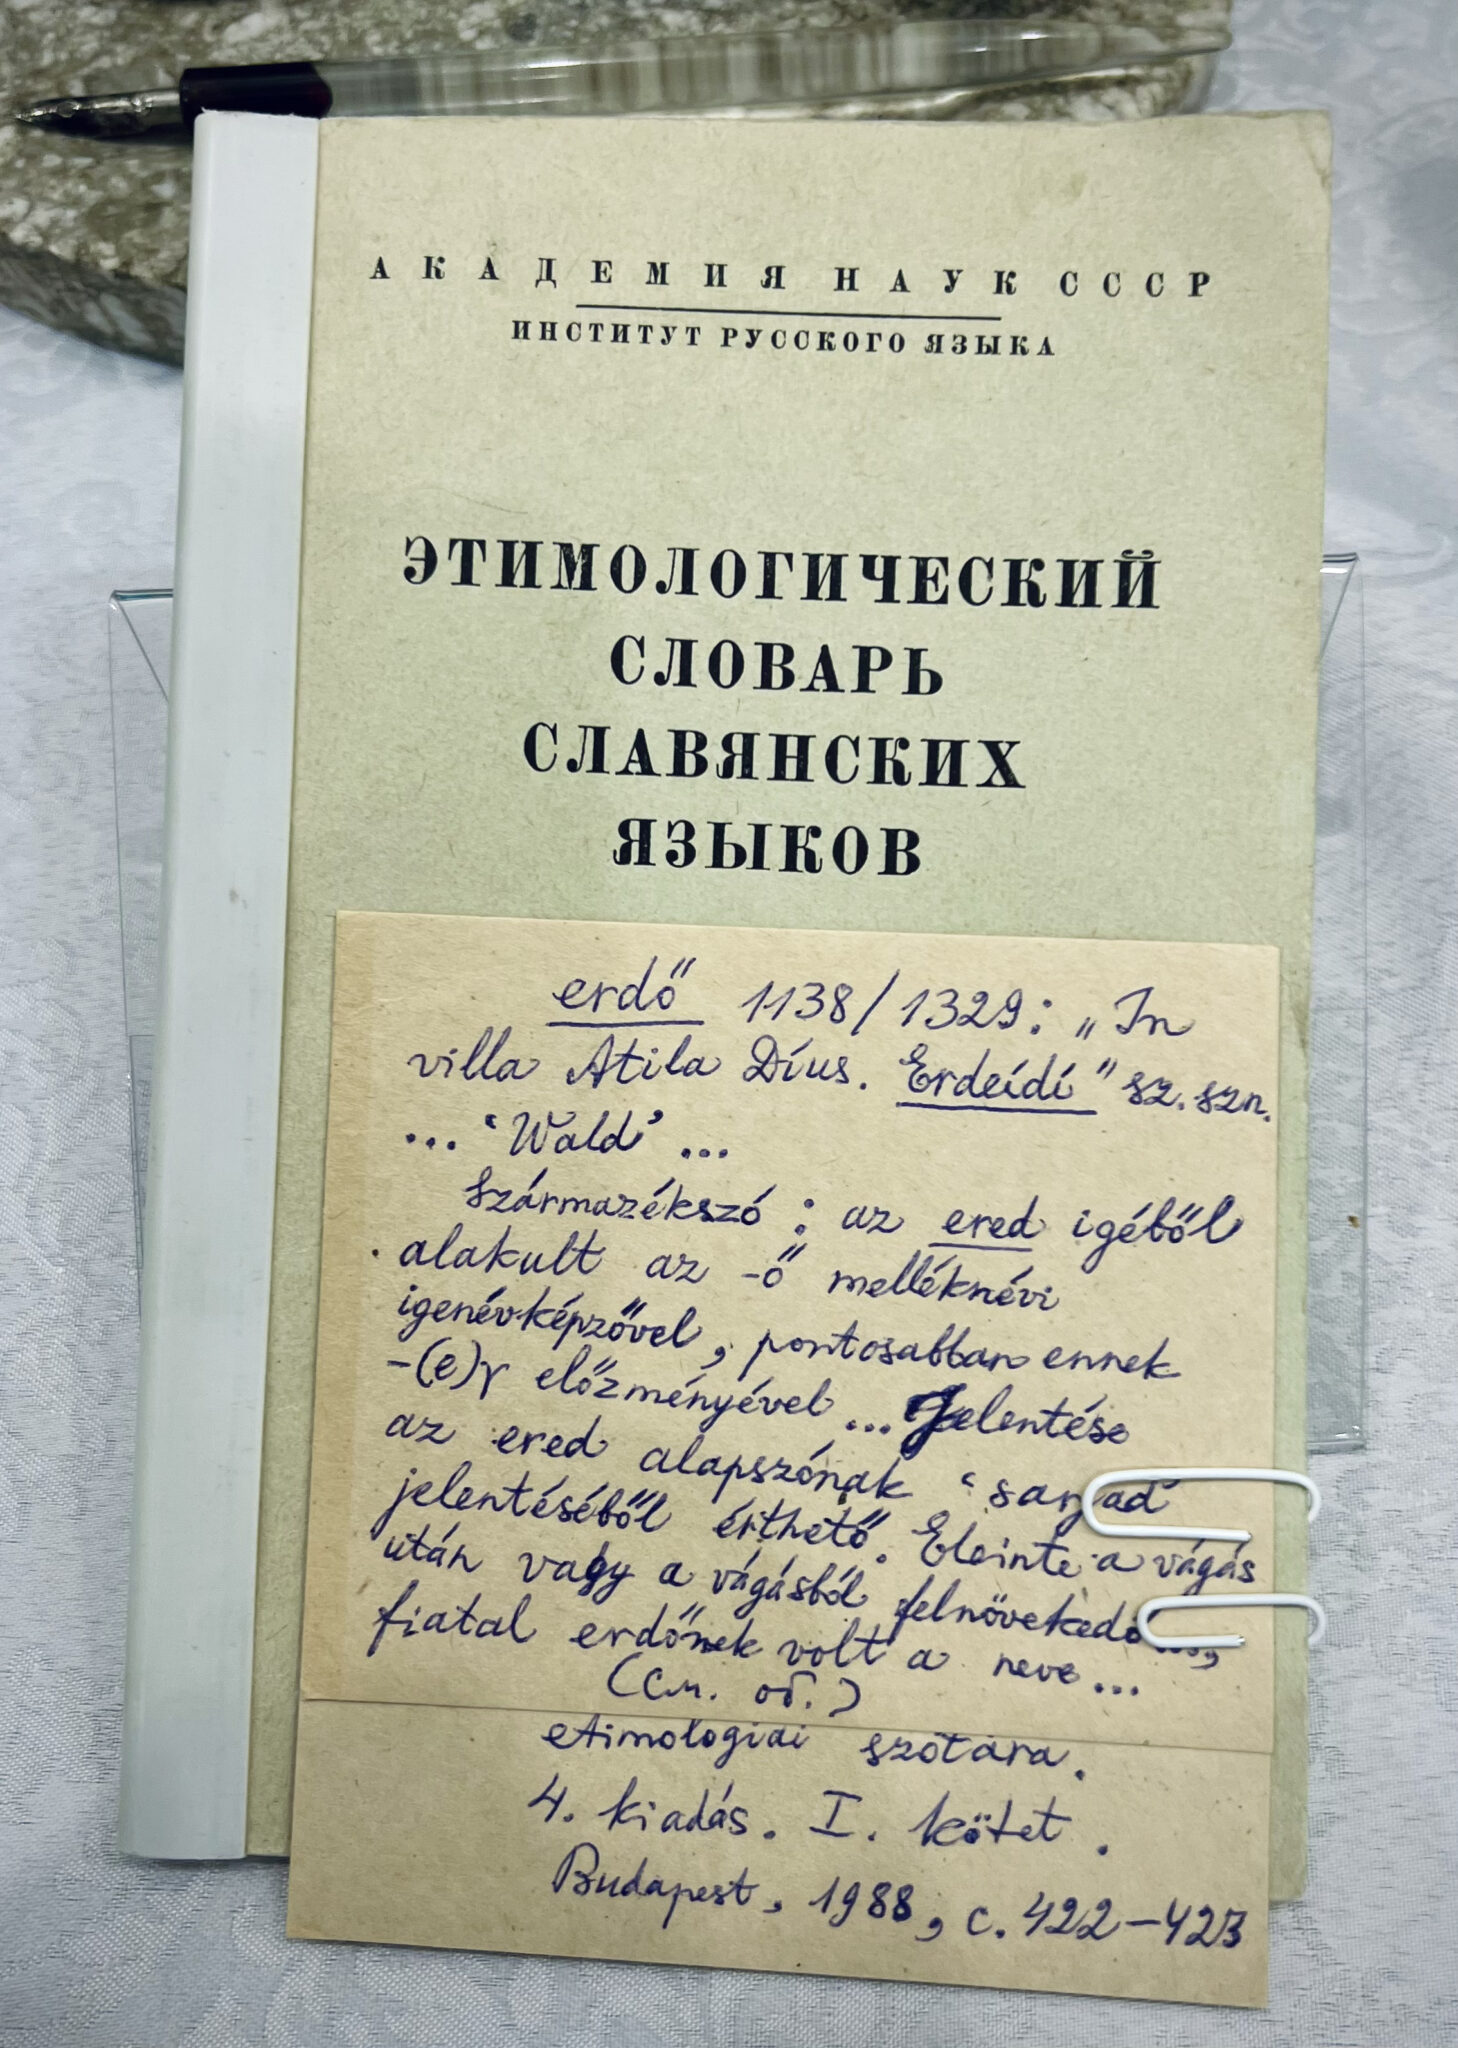 АКАДЕМИЯ НАУК СССР
ИНСТИТУТ РУССКОГО ЯЗЫКА
ЭТИМОЛОГИЧЕСКИЙ
СЛОВАРЬ
СЛАВЯНСКИХ
ЯЗЫКОВ
erdő 1138/1329: „In
villa Atila Díus. Erdeídí" sz. szn.
... ‘Wald’ ...
Származékszó: az ered igéből
alakult az -ő melléknévi
igenévképzővel, pontosabban ennek
-(e)γ előzményével ... Jelentése
az ered alapszónak ‘sarjad’
jelentéséből érthető. Eleinte a vágás
után vagy a vágásból felnövekedő
fiatal erdőnek volt a neve ...
(см. об.)
etimologiai szótára.
4. kiadás. I. kötet.
Budapest, 1988, с. 422–423